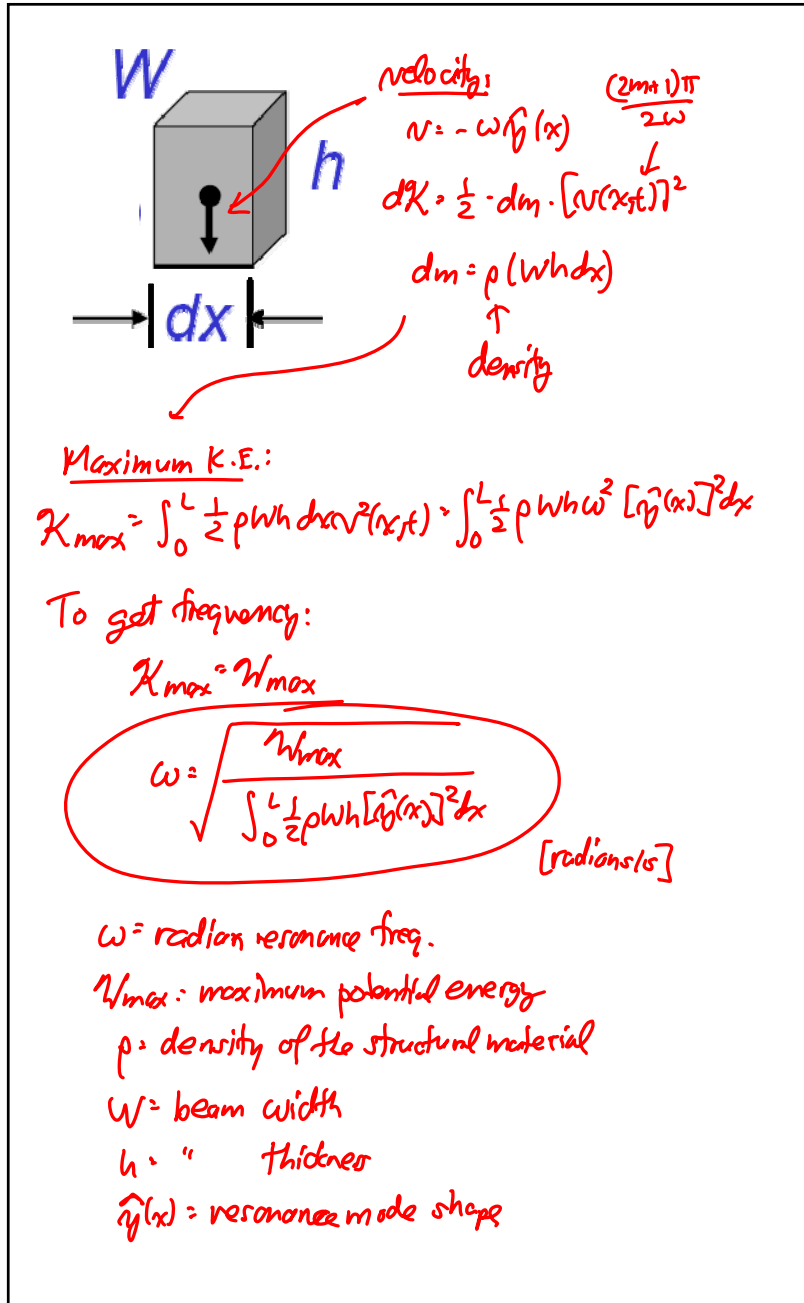 W
h
dx
velocity:
v = -ωŷ(x)
(2n+1)π / 2ω
dK = ½ · dm · [v(x,t)]²
dm = ρ(Whdx)
density
Maximum K.E.:
K_max = ∫₀ᴸ ½ ρWh dx v²(x,t) = ∫₀ᴸ ½ ρWhω² [ŷ(x)]² dx
To get frequency:
K_max = W_max
ω = √( W_max / ∫₀ᴸ ½ ρWh[ŷ(x)]² dx )
[radians/s]
ω = radian resonance freq.
W_max = maximum potential energy
ρ = density of the structural material
W = beam width
h = " thickness
ŷ(x) = resonance mode shape